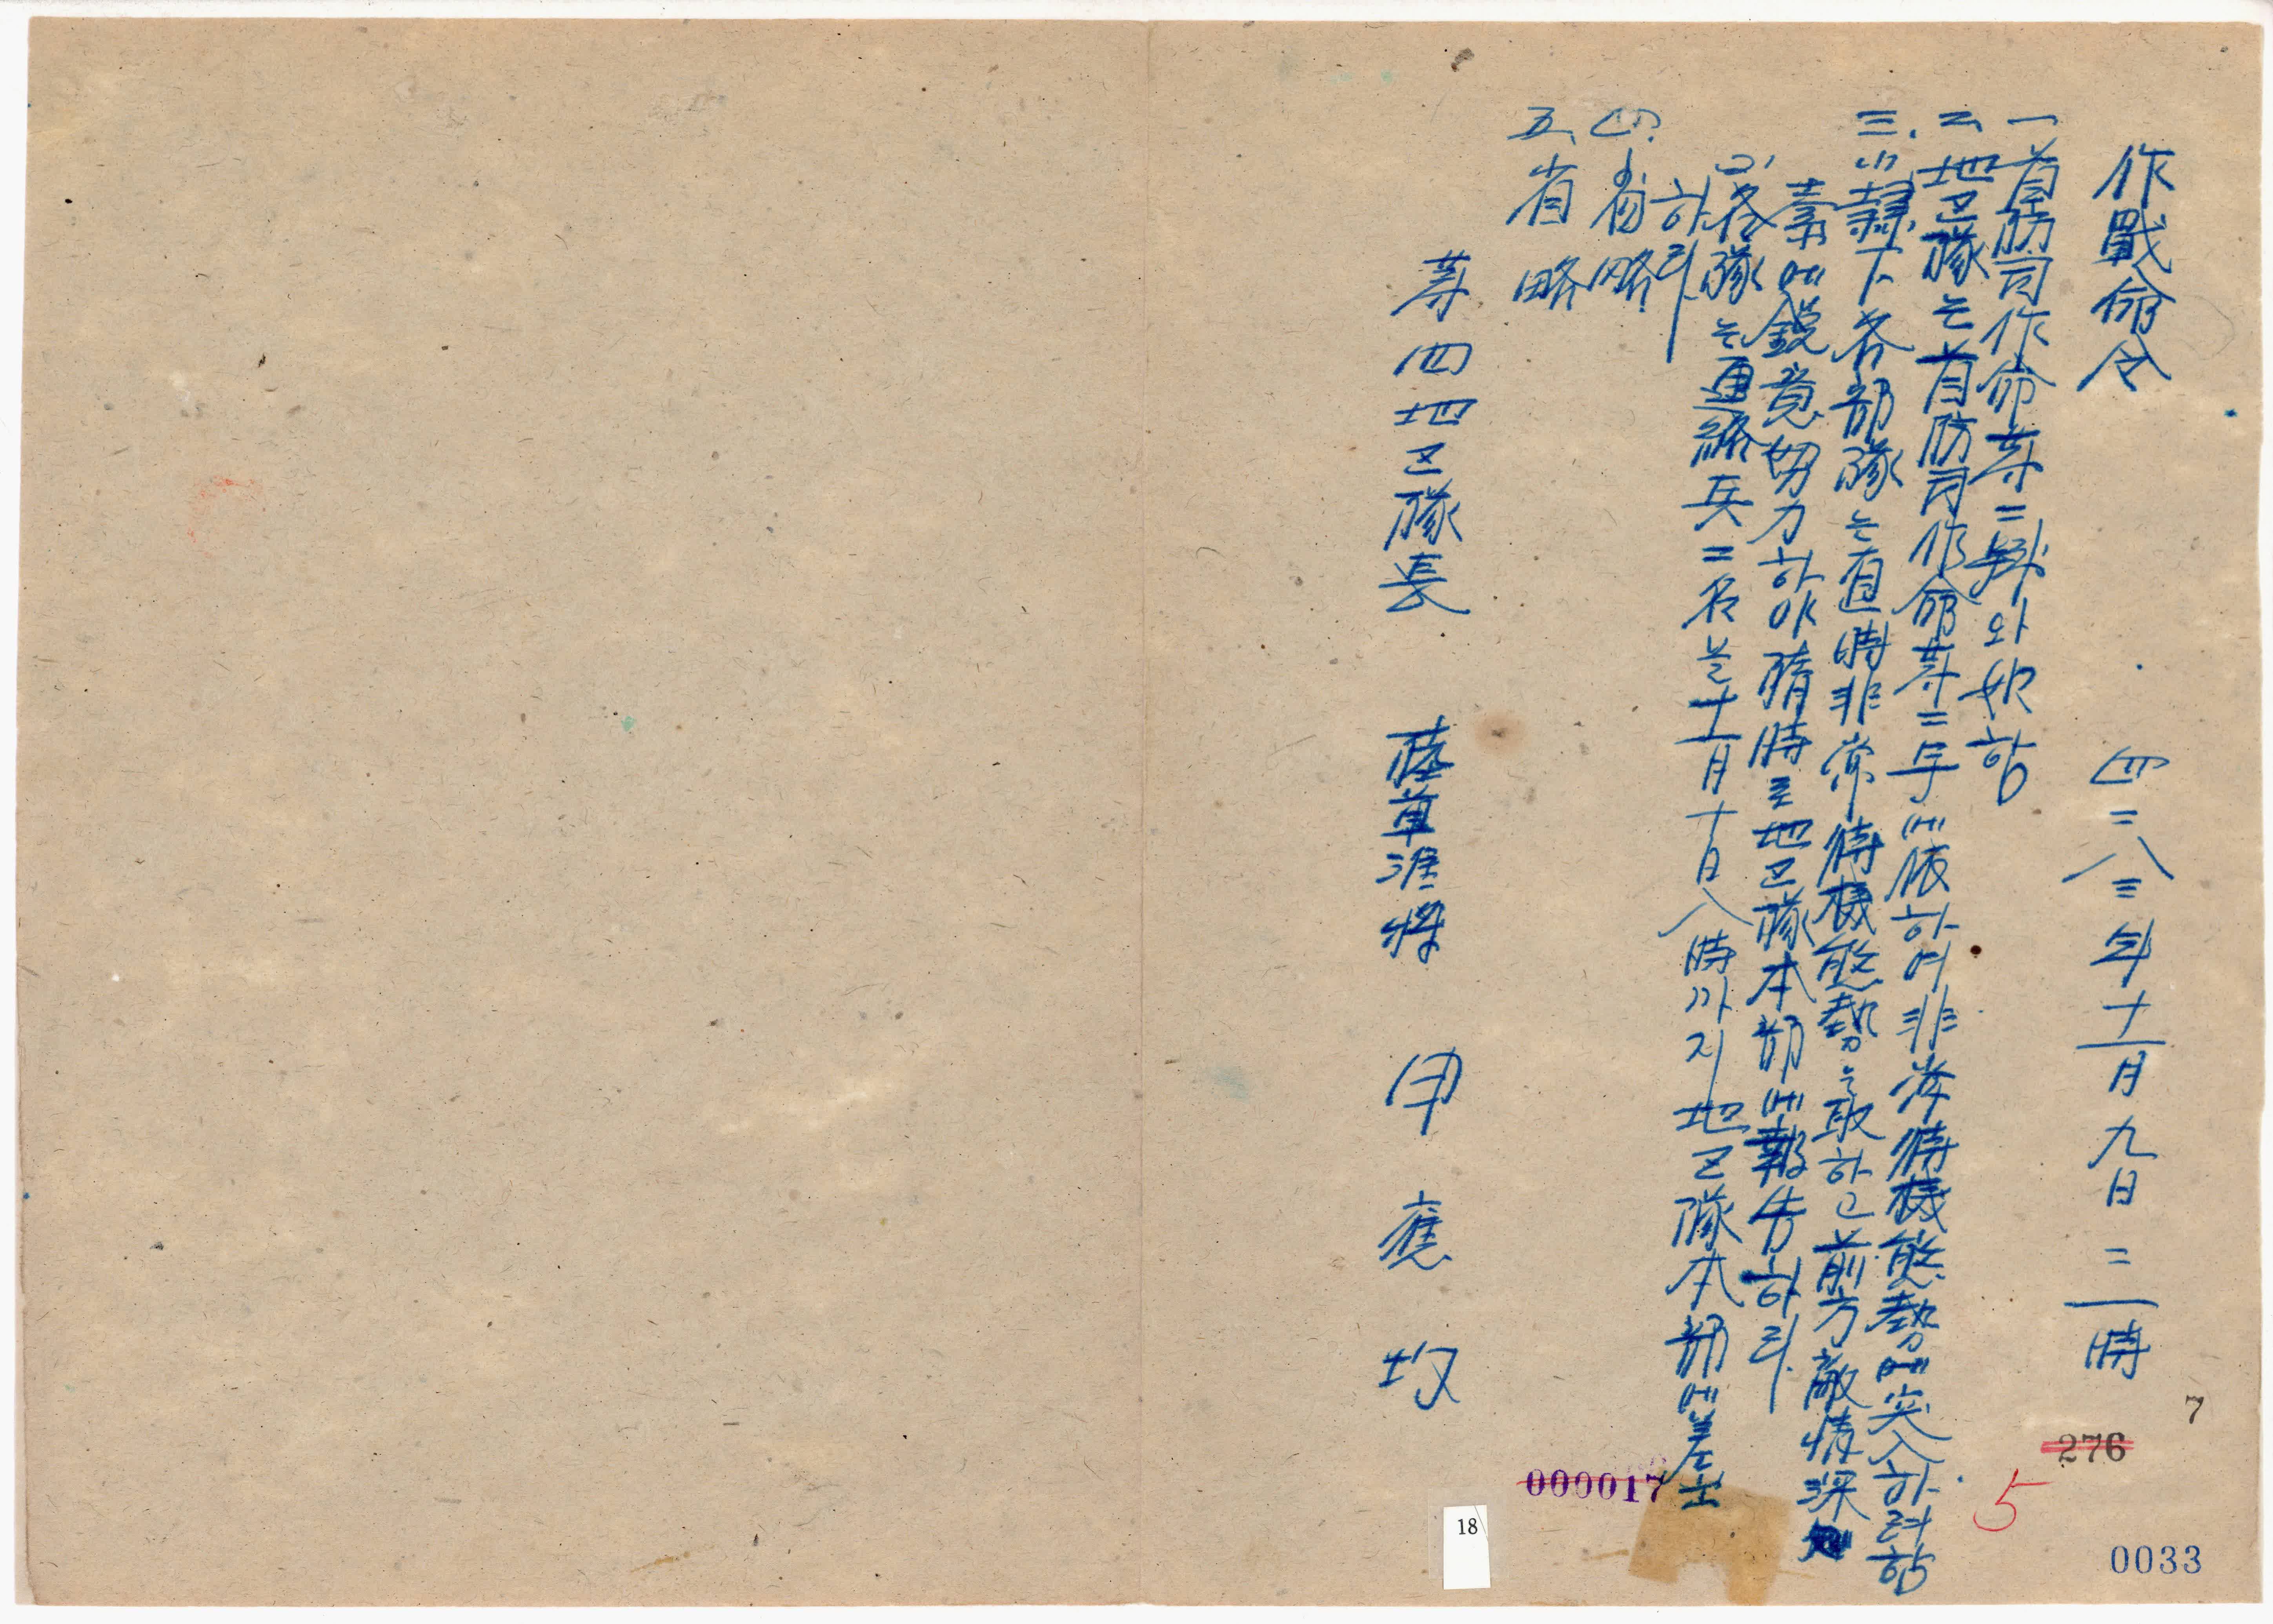 作戰命令
四二八三年十一月九日二一時
一 首防司作命 第二號와 如함
二、地区隊는 首防司作命 第二号에 依하여 非常待機態勢에 突入하려함
三、(1)隷下各部隊는 直時非常待機態勢를 取하고 前方敵情深
索에 銳意努力하야 隨時로 地区隊本部에 報告하라
(2)各隊는 連絡兵二名을 十一月十日八時까지 地区隊本部에 差出
하라
四、省略
五、省略
第四地区隊長 陸軍准將 申應均
7
276
5
0033
000017
18